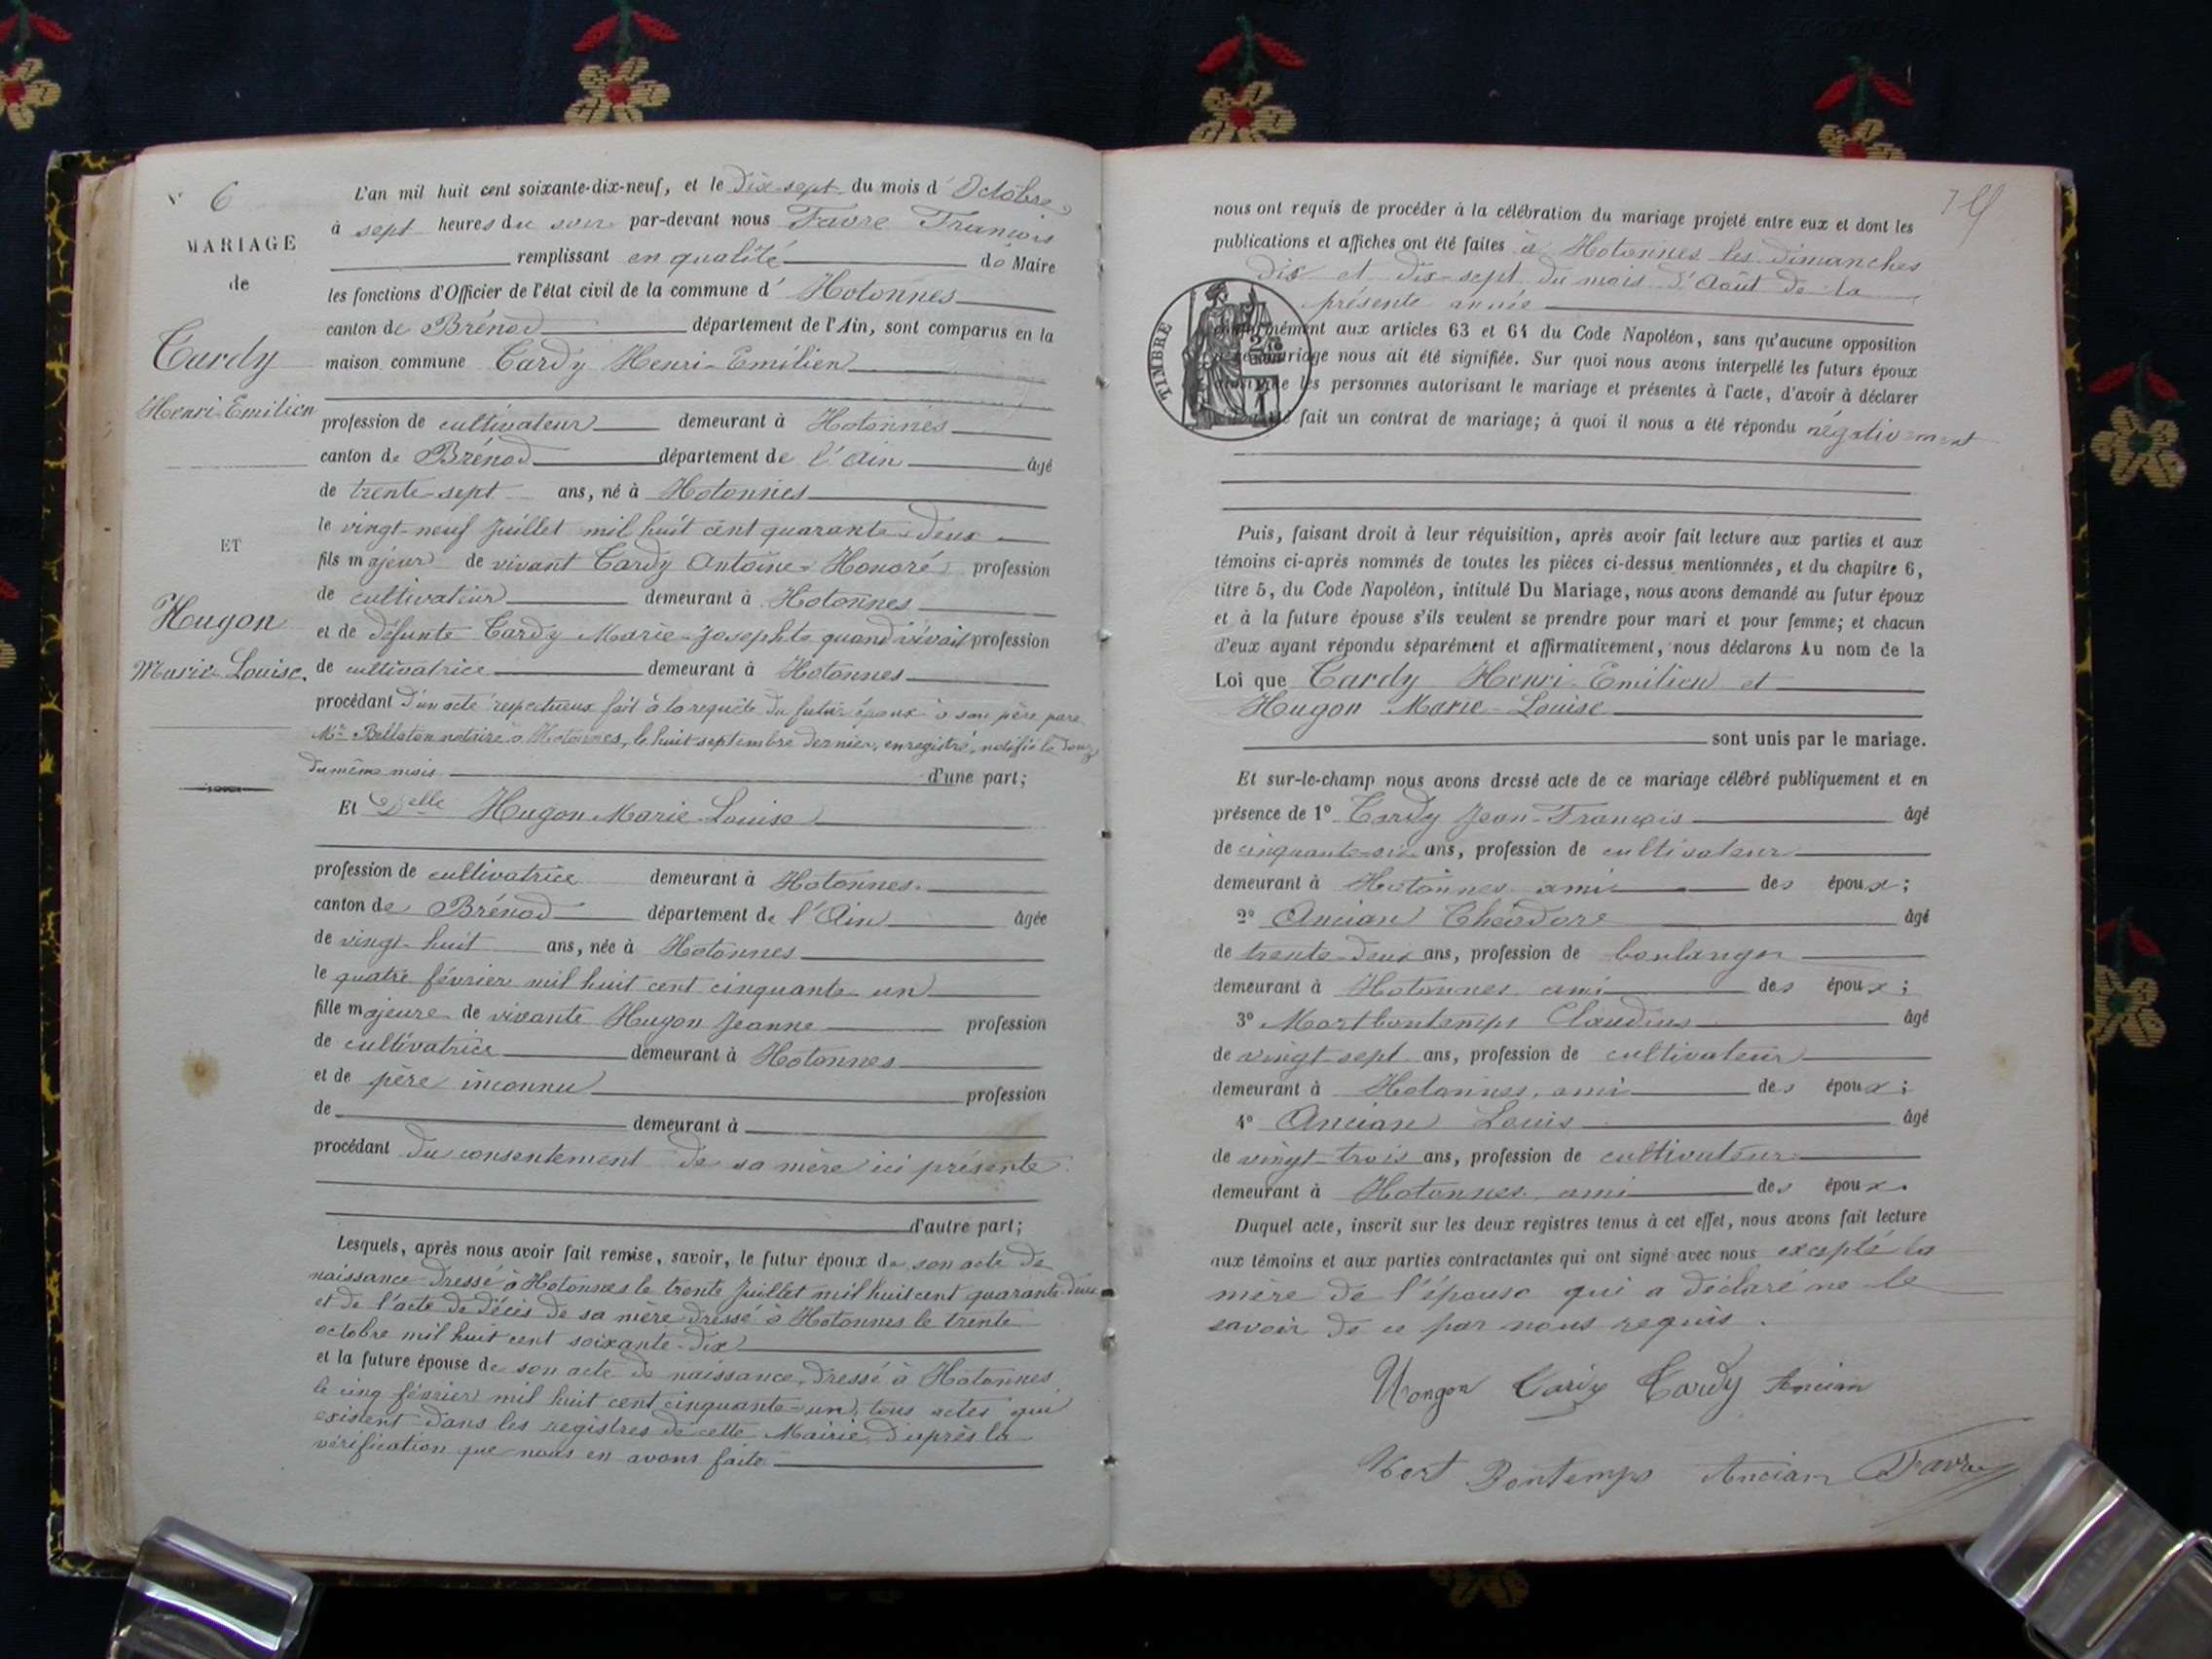 N° 6
MARIAGE
de
Tardy
Henri-Emilien
ET
Hugon
Marie-Louise.
L'an mil huit cent soixante-dix-neuf, et le dix-sept du mois d'Octobre
à sept heures du soir par-devant nous Favre François
remplissant en qualité de Maire
les fonctions d'Officier de l'état civil de la commune d'Hotonnes
canton de Brénod département de l'Ain, sont comparus en la
maison commune Tardy Henri-Emilien
profession de cultivateur demeurant à Hotonnes
canton de Brénod département de l'Ain âgé
de trente-sept ans, né à Hotonnes
le vingt-neuf Juillet mil huit cent quarante-deux
fils majeur de vivant Tardy Antoine-Honoré profession
de cultivateur demeurant à Hotonnes
et de défunte Tardy Marie-Josephte quand vivait profession
de cultivatrice demeurant à Hotonnes
procédant d'un acte respectueux fait à la requête du futur époux à son père par
Mr notaire à Hotonnes, le huit septembre dernier, enregistré, notifié le douze
du même mois d'une part;
Et Delle Hugon Marie-Louise
profession de cultivatrice demeurant à Hotonnes.
canton de Brénod département de l'Ain âgée
de vingt-huit ans, née à Hotonnes
le quatre février mil huit cent cinquante-un
fille majeure de vivante Hugon Jeanne profession
de cultivatrice demeurant à Hotonnes
et de père inconnu profession
de demeurant à
procédant du consentement de sa mère ici présente
d'autre part;
Lesquels, après nous avoir fait remise, savoir, le futur époux de son acte de
naissance dressé à Hotonnes le trente Juillet mil huit cent quarante-deux
et de l'acte de décès de sa mère dressé à Hotonnes le trente
octobre mil huit cent soixante-dix
et la future épouse de son acte de naissance, dressé à Hotonnes
le cinq février mil huit cent cinquante-un, tous actes qui
existent dans les registres de cette Mairie, d'après la
vérification que nous en avons faite
nous ont requis de procéder à la célébration du mariage projeté entre eux et dont les
publications et affiches ont été faites à Hotonnes les dimanches
dix et dix-sept du mois d'Août de la
présente année
TIMBRE
conformément aux articles 63 et 64 du Code Napoléon, sans qu'aucune opposition
mariage nous ait été signifiée. Sur quoi nous avons interpellé les futurs époux
les personnes autorisant le mariage et présentes à l'acte, d'avoir à déclarer
fait un contrat de mariage; à quoi il nous a été répondu négativement
Puis, faisant droit à leur réquisition, après avoir fait lecture aux parties et aux
témoins ci-après nommés de toutes les pièces ci-dessus mentionnées, et du chapitre 6,
titre 5, du Code Napoléon, intitulé Du Mariage, nous avons demandé au futur époux
et à la future épouse s'ils veulent se prendre pour mari et pour femme; et chacun
d'eux ayant répondu séparément et affirmativement, nous déclarons Au nom de la
Loi que Tardy Henri-Emilien et
Hugon Marie-Louise
sont unis par le mariage.
Et sur-le-champ nous avons dressé acte de ce mariage célébré publiquement et en
présence de 1° Tardy Jean-François âgé
de cinquante-six ans, profession de cultivateur
demeurant à Hotonnes ami des époux;
2° Ancian Théodore âgé
de trente-deux ans, profession de boulanger
demeurant à Hotonnes ami des époux;
3° Mortbontemps Claudius âgé
de vingt-sept ans, profession de cultivateur
demeurant à Hotonnes, ami des époux;
4° Ancian Louis âgé
de vingt-trois ans, profession de cultivateur
demeurant à Hotonnes, ami des époux.
Duquel acte, inscrit sur les deux registres tenus à cet effet, nous avons fait lecture
aux témoins et aux parties contractantes qui ont signé avec nous excepté la
mère de l'épouse qui a déclaré ne le
savoir de ce par nous requis.
Tardy Tardy Ancian
Mort Bontemps Ancian Favre